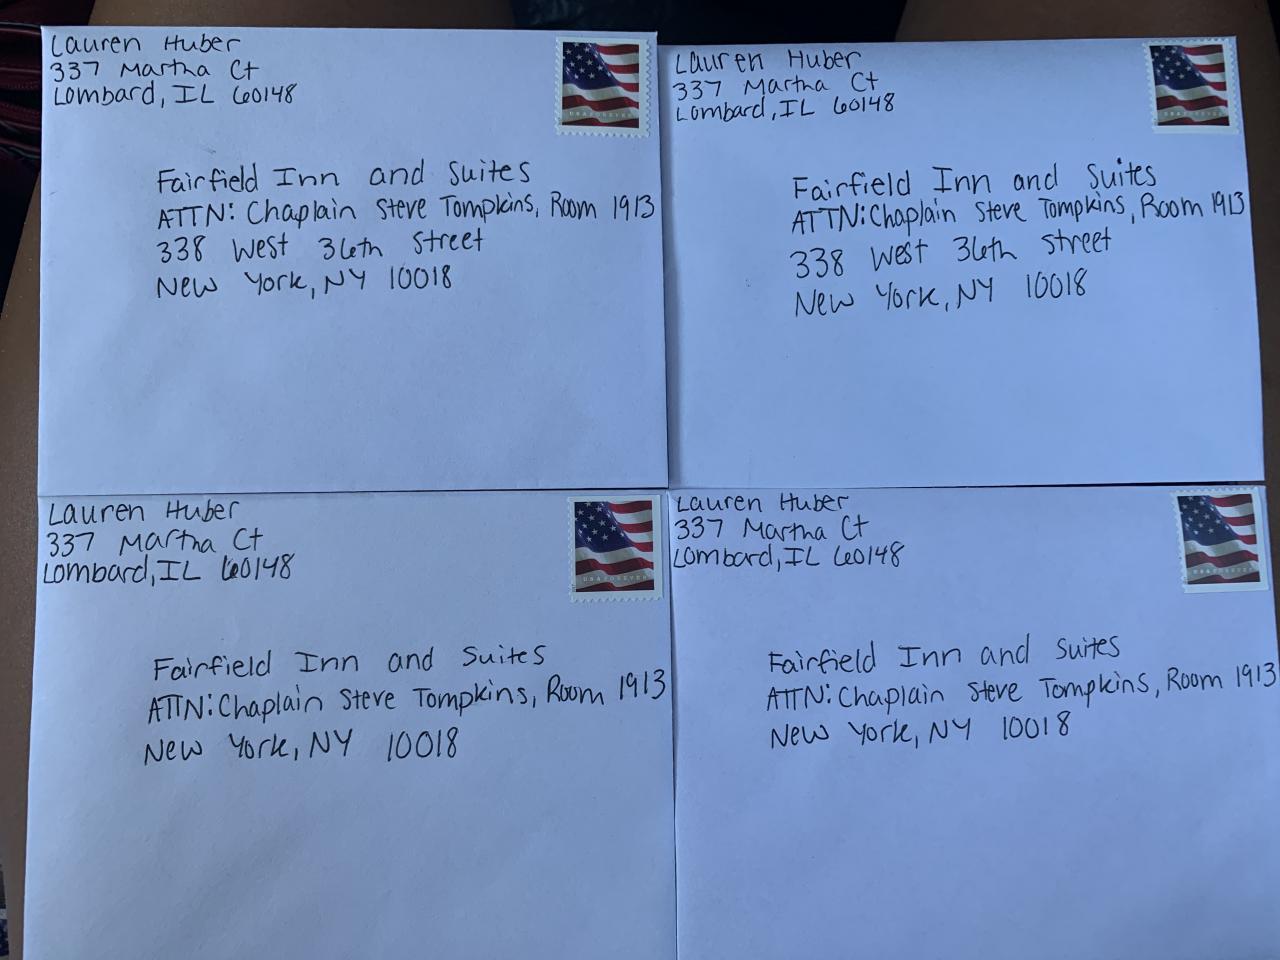 Lauren Huber
337 Martha Ct
Lombard, IL 60148
Fairfield Inn and Suites
ATTN: Chaplain Steve Tompkins, Room 1913
338 West 36th Street
New York, NY 10018
Lauren Huber
337 Martha Ct
Lombard, IL 60148
Fairfield Inn and Suites
ATTN: Chaplain Steve Tompkins, Room 1913
338 West 36th Street
New York, NY 10018
Lauren Huber
337 Martha Ct
Lombard, IL 60148
USA FOREVER
Fairfield Inn and Suites
ATTN: Chaplain Steve Tompkins, Room 1913
New York, NY 10018
Lauren Huber
337 Martha Ct
Lombard, IL 60148
USA FOREVER
Fairfield Inn and Suites
ATTN: Chaplain Steve Tompkins, Room 1913
New York, NY 10018